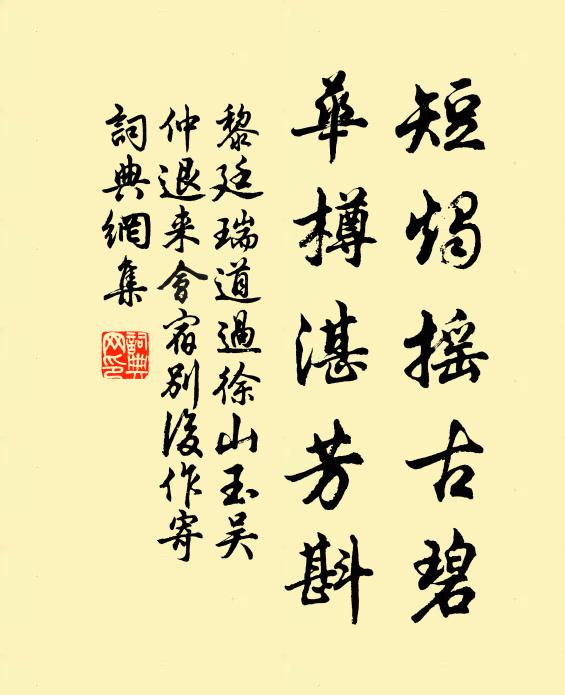 短燭摇古碧
華樽湛芳斟
黎廷瑞道過徐山玉吴
仲退来會宿别後作寄
詞典網集
詞典
网印